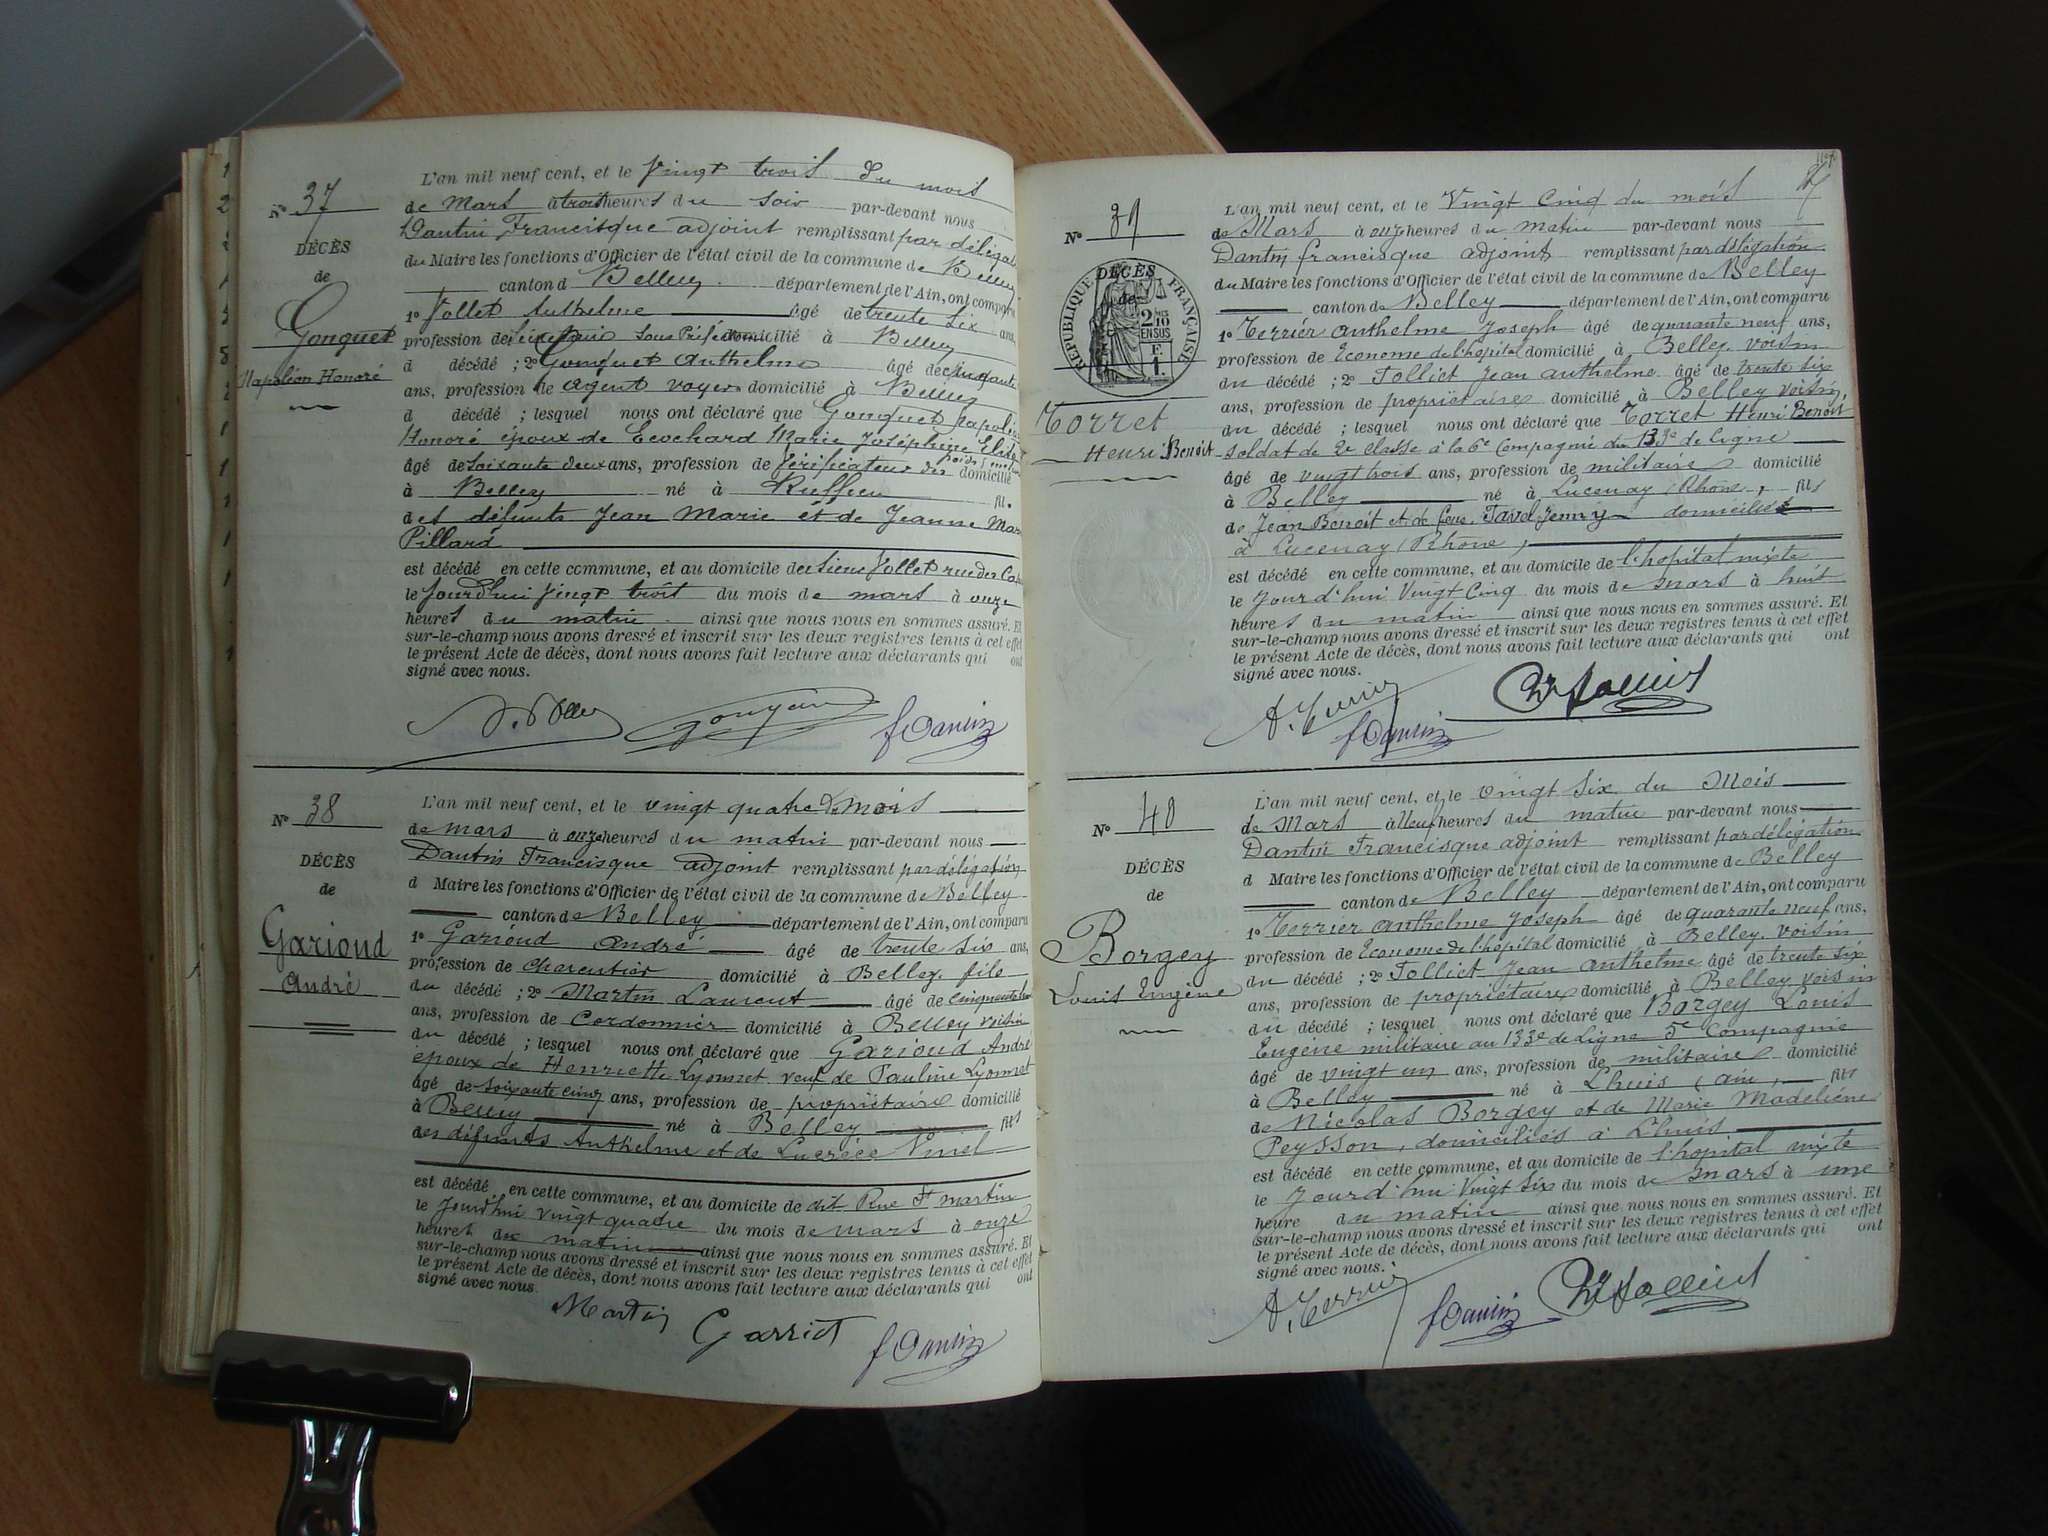 N° 37
DÉCÈS
de
Gonguet
Napoléon Honoré
L'an mil neuf cent, et le Vingt trois du mois
de Mars à trois heures du soir par-devant nous
Dantin Francisque adjoint remplissant par délégat
du Maire les fonctions d'Officier de l'état civil de la commune de Belley
canton d Belley département de l'Ain, ont comparu
1° Vollet Anthelme âgé de trente six ans,
profession de Secrétaire Sous Préfecture domicilié à Belley
d décédé ; 2° Gonguet Anthelme âgé de cinquante
ans, profession de agent voyer domicilié à Belley
d décédé ; lesquel nous ont déclaré que Gonguet Napoléon
Honoré époux de Cochard Marie Joséphine Elise
âgé de soixante deux ans, profession de Vérificateur des poids domicilié
à Belley né à Ruffieu fil
des défunts Jean Marie et de Jeanne Marie
Pillard
est décédé en cette commune, et au domicile du sieur Vollet rue des
le jourd'hui vingt trois du mois de mars à onze
heures du matin ainsi que nous nous en sommes assuré. Et
sur-le-champ nous avons dressé et inscrit sur les deux registres tenus à cet effet
le présent Acte de décès, dont nous avons fait lecture aux déclarants qui ont
signé avec nous.
fDantin
N° 38
DÉCÈS
de
Garioud
André
L'an mil neuf cent, et le vingt quatre du mois
de mars à onze heures du matin par-devant nous
Dantin Francisque adjoint remplissant par délégation
d Maire les fonctions d'Officier de l'état civil de la commune de Belley
canton d Belley département de l'Ain, ont comparu
1° Garioud André âgé de trente six ans,
profession de Charcutier domicilié à Belley, fils
du décédé ; 2° Martin Laurent âgé de cinquante
ans, profession de Cordonnier domicilié à Belley voisin
du décédé ; lesquel nous ont déclaré que Garioud André
époux de Henriette Lyonnet veuf de Pauline Lyonnet
âgé de soixante cinq ans, profession de propriétaire domicilié
à Belley né à Belley fils
des défunts Anthelme et de Lucrèce Vuiel
est décédé en cette commune, et au domicile de dit Rue St martin
le Jourd'hui vingt quatre du mois de mars à onze
heures du matin ainsi que nous nous en sommes assuré. Et
sur-le-champ nous avons dressé et inscrit sur les deux registres tenus à cet effet
le présent Acte de décès, dont nous avons fait lecture aux déclarants qui ont
signé avec nous.
Martin Garriod fDantin
N° 39
DÉCÈS
de
RÉPUBLIQUE FRANÇAISE
2/10 EN SUS
F. 1.
Torret
Henri Benoit
L'an mil neuf cent, et le Vingt Cinq du mois
de Mars à onze heures du matin par-devant nous
Dantin francisque adjoint remplissant par délégation
du Maire les fonctions d'Officier de l'état civil de la commune de Belley
canton de Belley département de l'Ain, ont comparu
1° Terrier Anthelme Joseph âgé de quarante neuf ans,
profession de Econome de l'hôpital domicilié à Belley, voisin
du décédé ; 2° Jolliet Jean Anthelme âgé de trente six
ans, profession de propriétaire domicilié à Belley voisin,
du décédé ; lesquel nous ont déclaré que Torret Henri Benoit
soldat de 2e classe à la 6e Compagnie du 133e de ligne
âgé de vingt trois ans, profession de militaire domicilié
à Belley né à Lucenay (Rhône) fils
de Jean Benoit et de feue Tavel Jenny domiciliés
à Lucenay (Rhône)
est décédé en cette commune, et au domicile de l'hopital mixte
le jourd'hui Vingt Cinq du mois de mars à huit
heures du matin ainsi que nous nous en sommes assuré. Et
sur-le-champ nous avons dressé et inscrit sur les deux registres tenus à cet effet
le présent Acte de décès, dont nous avons fait lecture aux déclarants qui ont
signé avec nous.
A. Terrier
fDantin
N° 40
DÉCÈS
de
Borgey
Louis Eugène
L'an mil neuf cent, et le vingt six du Mois
de Mars à neuf heures du matin par-devant nous
Dantin Francisque adjoint remplissant par délégation
d Maire les fonctions d'Officier de l'état civil de la commune de Belley
canton de Belley département de l'Ain, ont comparu
1° Terrier Anthelme Joseph âgé de quarante neuf ans,
profession de Econome de l'hôpital domicilié à Belley, voisin
du décédé ; 2° Jolliet Jean Anthelme âgé de trente six
ans, profession de propriétaire domicilié à Belley voisin
du décédé ; lesquel nous ont déclaré que Borgey Louis
Eugène militaire au 133e de Ligne 5e Compagnie
âgé de vingt un ans, profession de militaire domicilié
à Belley né à Lhuis (ain) fils
de Nicolas Borgey et de Marie Madeleine
Peysson, domiciliés à Lhuis
est décédé en cette commune, et au domicile de l'hopital mixte
le Jourd'hui Vingt Six du mois de mars à une
heure du matin ainsi que nous nous en sommes assuré. Et
sur-le-champ nous avons dressé et inscrit sur les deux registres tenus à cet effet
le présent Acte de décès, dont nous avons fait lecture aux déclarants qui ont
signé avec nous.
A. Terrier fDantin